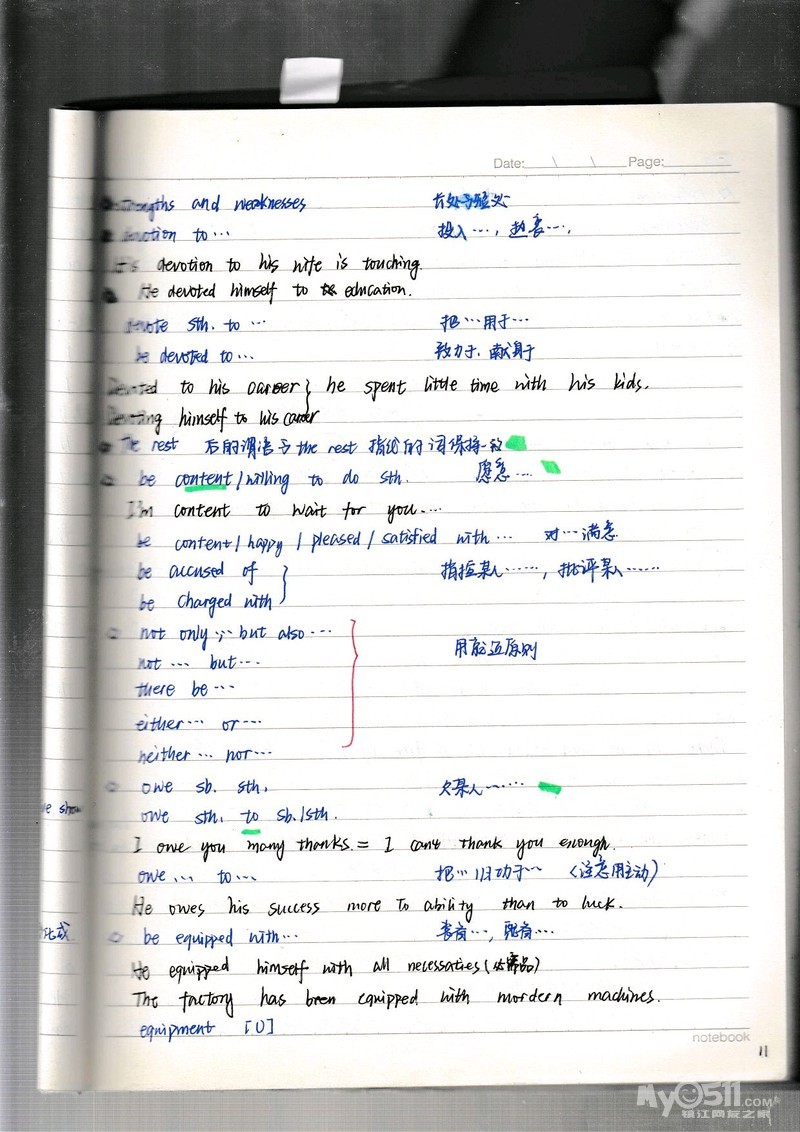 Date: \ \ Page:
strengths and weaknesses 长处与短处
devotion to… 投入…，热衷…．
His devotion to his wife is touching.
He devoted himself to education.
devote sth. to … 把…用于…
be devoted to… 致力于．献身于
Devoted to his career } he spent little time with his kids.
Devoting himself to his career
The rest 后的谓语与 the rest 指代的词保持一致
be content/willing to do sth. 愿意…
I'm content to wait for you….
be content / happy / pleased / satisfied with … 对…满意
be accused of 指控某人……，批评某人……
be charged with
not only … but also …
not … but… 用就近原则
there be …
either … or …
neither … nor …
owe sb. sth. 欠某人……
owe sth. to sb./sth.
I owe you many thanks. = I can't thank you enough.
owe … to… 把…归功于… （注意用主动）
He owes his success more to ability than to luck.
be equipped with… 装备…，配备…
He equipped himself with all necessaties (必需品)
The factory has been equipped with mordern machines.
equipment [U]
notebook
11
My0511.COM
镇江网友之家